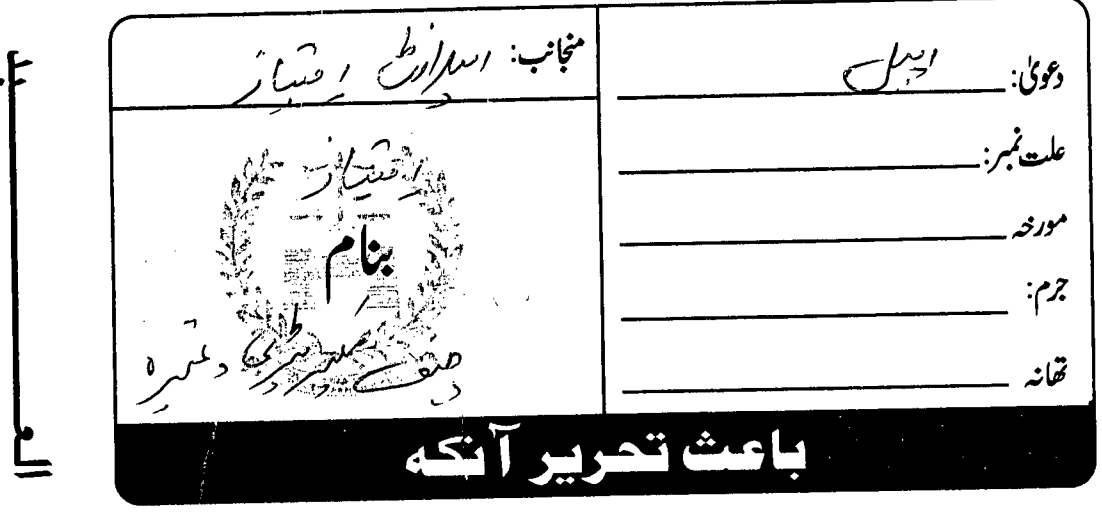 دعویٰ: اپیل
علت نمبر:
مورخہ
جرم:
تھانہ
منجانب: امتیاز
امتیاز
بنام
وغیرہ
باعث تحریر آنکہ